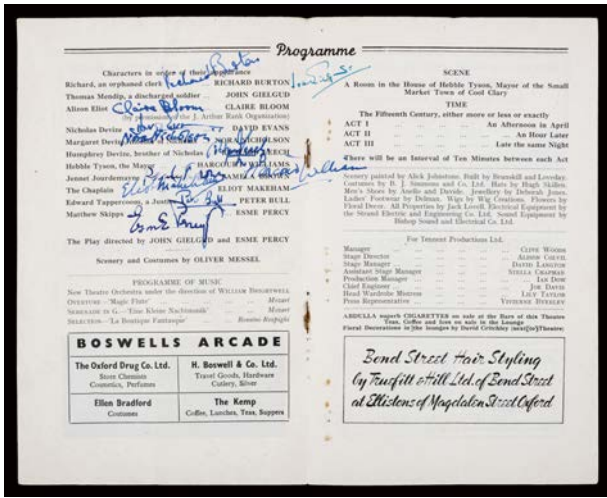 Programme
Characters in order of their appearance
Richard, an orphaned clerk RICHARD BURTON
Richard Burton
Thomas Mendip, a discharged soldier .. JOHN GIELGUD
Alison Eliot CLAIRE BLOOM
Claire Bloom
(by permission of the J. Arthur Rank Organization)
Nicholas Devize DAVID EVANS
Margaret Devize NORA NICHOLSON
Nora Nicholson
Humphrey Devize, brother of Nicholas
Hebble Tyson, the Mayor HARCOURT WILLIAMS
Jennet Jourdemayne PAMELA BROWN
The Chaplain ELIOT MAKEHAM
Eliot Makeham
Edward Tappercoom, a Justice PETER BULL
Peter Bull
Matthew Skipps ESME PERCY
Esme Percy
The Play directed by JOHN GIELGUD and ESME PERCY
Scenery and Costumes by OLIVER MESSEL
PROGRAMME OF MUSIC
New Theatre Orchestra under the direction of WILLIAM
OVERTURE—'Magic Flute' ... Mozart
SERENADE IN G—'Eine Kleine Nachtmusik' Mozart
SELECTION—'La Boutique Fantasque' Rossini-Respighi
BOSWELLS ARCADE
The Oxford Drug Co. Ltd.
Store Chemists
Cosmetics, Perfumes
H. Boswell & Co. Ltd.
Travel Goods, Hardware
Cutlery, Silver
Ellen Bradford
Costumes
The Kemp
Coffee, Lunches, Teas, Suppers
SCENE
A Room in the House of Hebble Tyson, Mayor of the Small
Market Town of Cool Clary
TIME
The Fifteenth Century, either more or less or exactly
ACT I ... An Afternoon in April
ACT II ... An Hour Later
ACT III ... Late the same Night
There will be an Interval of Ten Minutes between each Act
Scenery painted by Alick Johnstone. Built by Brunskill and Loveday.
Costumes by B. J. Simmons and Co. Ltd. Hats by Hugh Skillen.
Men's Shoes by Anello and Davide. Jewellery by Deborah Jones.
Ladies' Footwear by Delman. Wigs by Wig Creations. Flowers by
Floral Decor. All Properties by Jack Lovell. Electrical Equipment by
the Strand Electric and Engineering Co. Ltd. Sound Equipment by
Bishop Sound and Electrical Co. Ltd.
For Tennent Productions Ltd.
Manager ... CLIVE WOODS
Stage Director ... ALISON COLVIL
Stage Manager ... DAVID LANGTON
Assistant Stage Manager ... STELLA CHAPMAN
Production Manager ... IAN DOW
Chief Engineer ... JOE DAVIS
Head Wardrobe Mistress ... LILY TAYLOR
Press Representative ... VIVIENNE BYERLEY
ABDULLA superb CIGARETTES on sale at the Bars of this Theatre
Teas, Coffee and Ices on sale in the Lounge
Floral Decorations in the lounges by David Critchley (near to) Theatre
Bond Street Hair Styling
by Truefitt & Hill Ltd. of Bond Street
at Ellistons of Magdalen Street Oxford